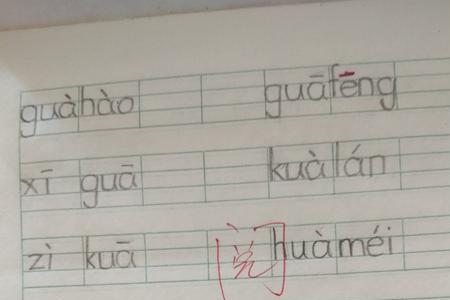 guàhào guāfēng
xī guā kuàlán
zì kuā 阅 huàméi